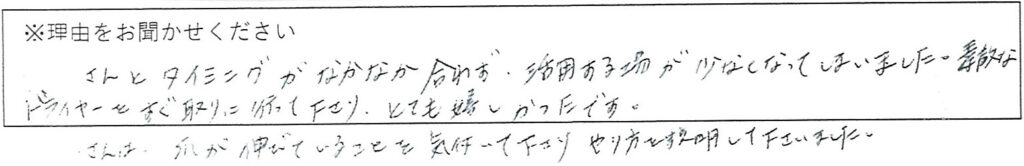 ※理由をお聞かせください
さんとタイミングがなかなか合わず、活用する場が少なくなってしまいました。素敵な
ドライヤーをすぐ取りに行って下さり、とても嬉しかったです。
さんは、爪が伸びていることを気付いて下さりやり方を説明して下さいました。